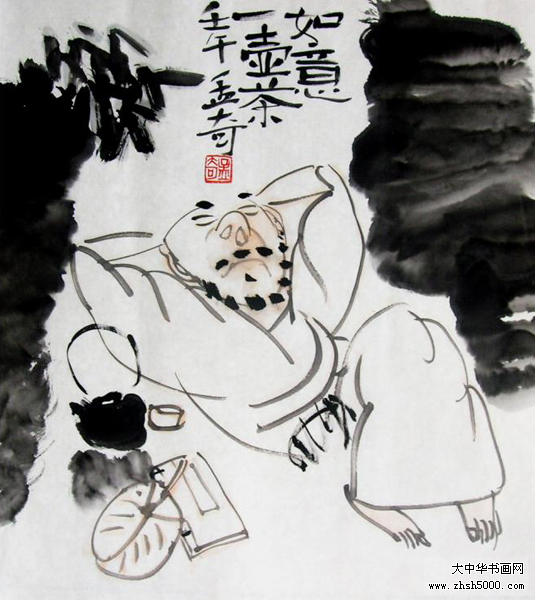 如意
一壶茶
壬午 孟奇
大中华书画网
www.zhsh5000.com